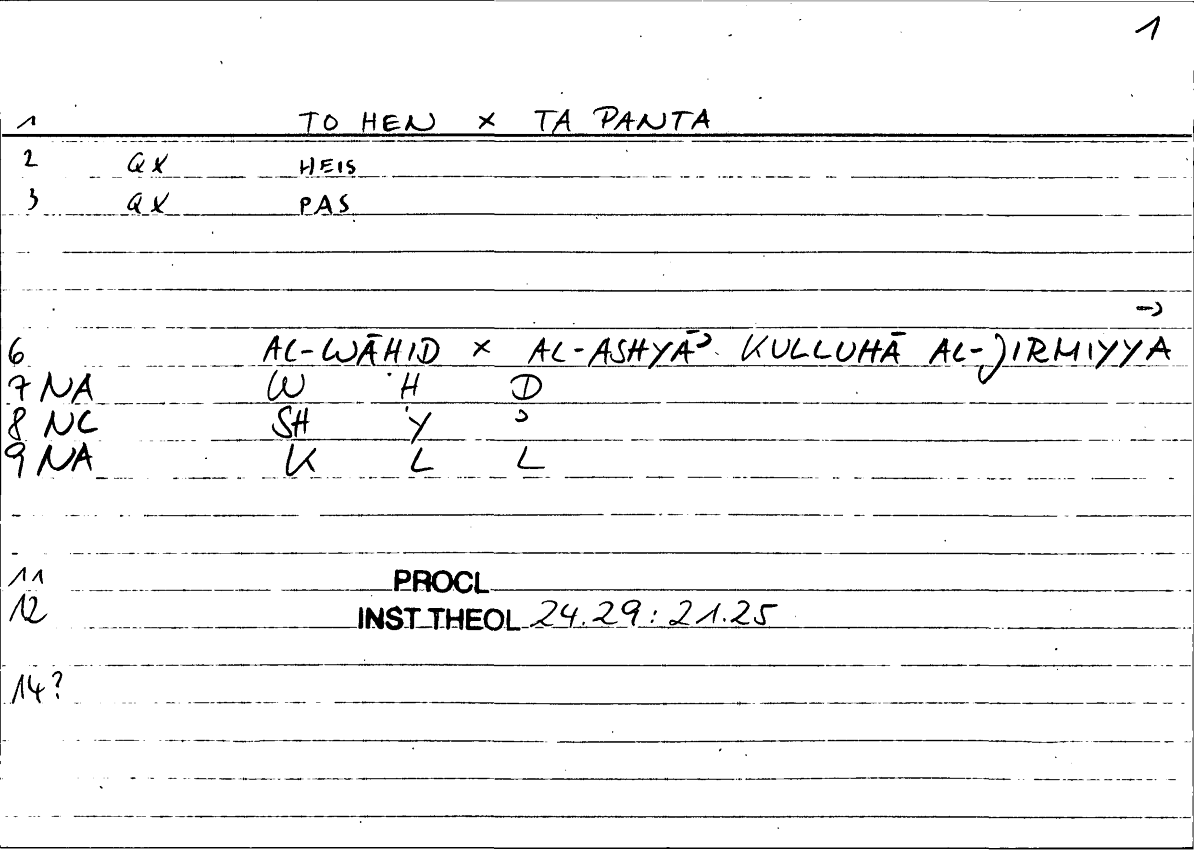 1
1 TO HEN × TA PANTA
2 QX HEIS
3 QX PAS
→
6 AL-WĀḤID × AL-ASHYĀʾ KULLUHĀ AL-JIRMIYYA
7 NA W Ḥ D
8 NC SH Y ʾ
9 NA K L L
11 PROCL
12 INST.THEOL 24.29:21.25
14?